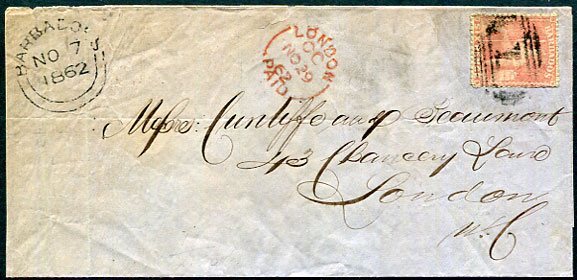 BARBADOS
NO 7
1862
LONDON
OC
NO 29
62
PAID
BARBADOS
1
Messrs. Cunliffe and Beaumont
43 Chancery Lane
London
W.C.